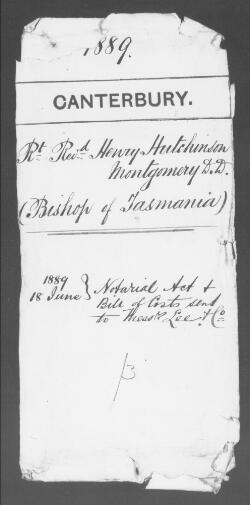 1889.
CANTERBURY.
Rt. Revd. Henry Hutchinson
Montgomery D.D.
(Bishop of Tasmania)
1889
18 June } Notarial Act &
Bill of Costs sent
to Messrs Lee & Co